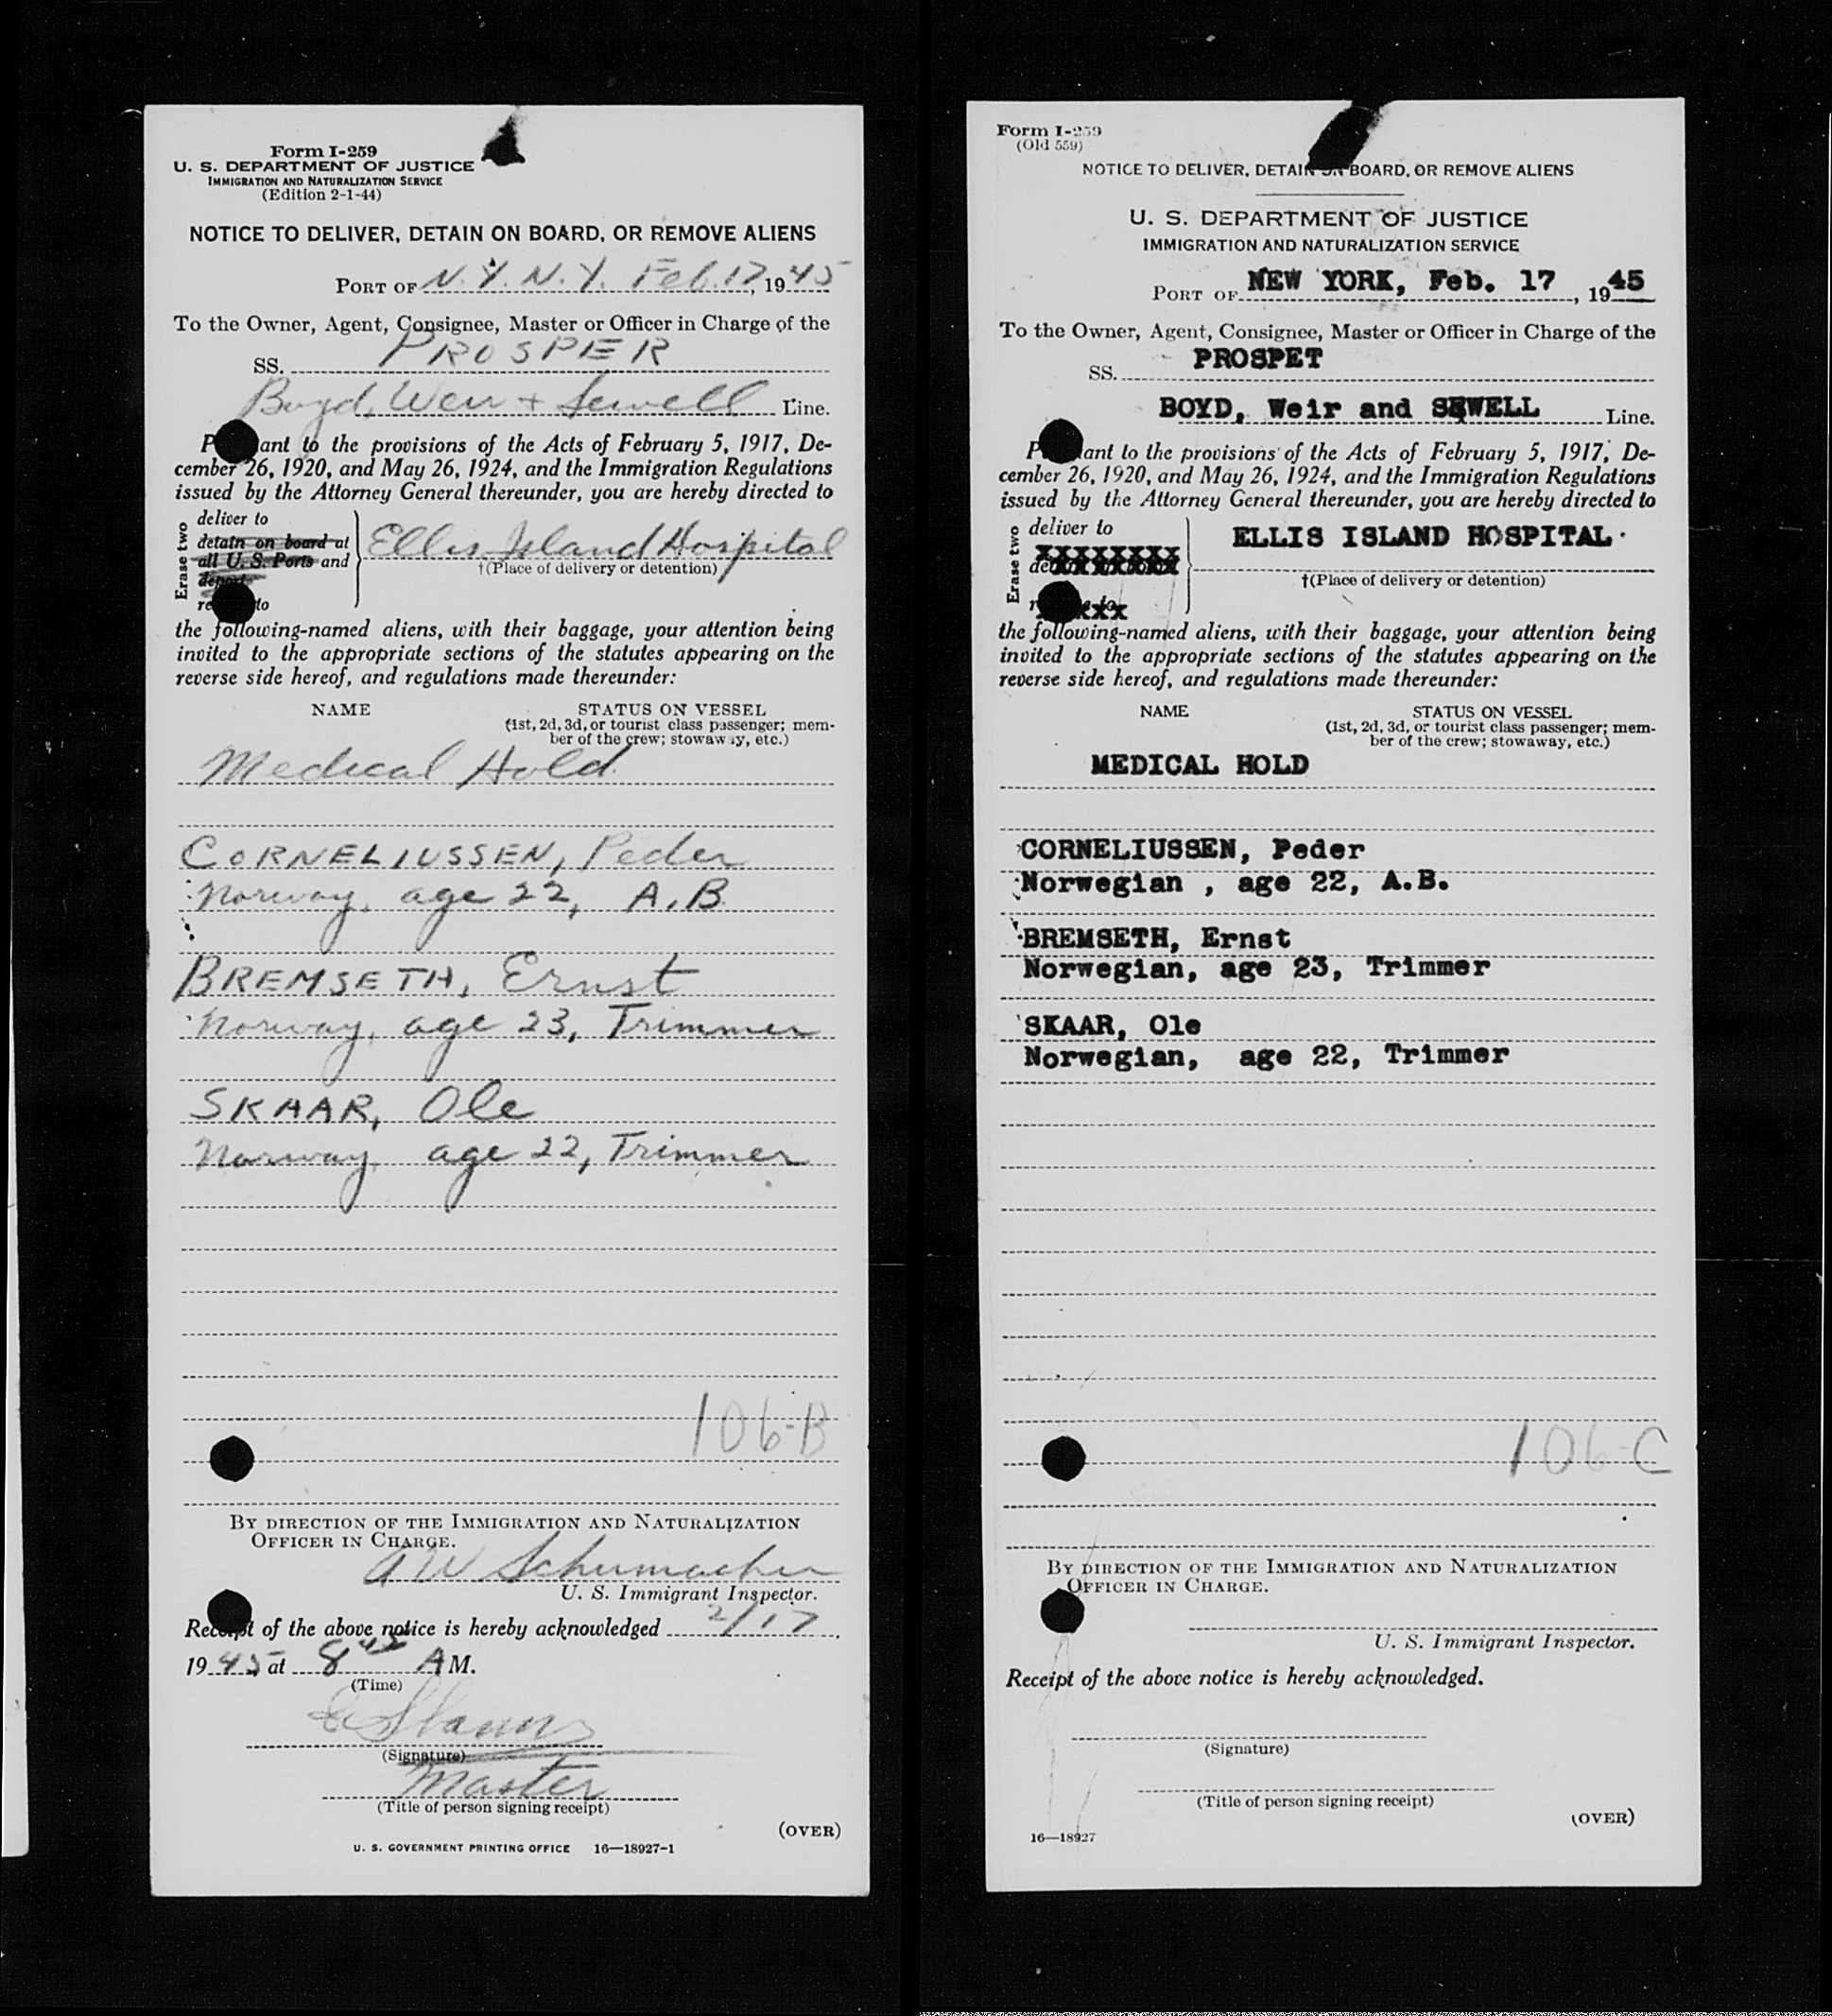 Form I-259
U. S. DEPARTMENT OF JUSTICE
IMMIGRATION AND NATURALIZATION SERVICE
(Edition 2-1-44)
NOTICE TO DELIVER, DETAIN ON BOARD, OR REMOVE ALIENS
PORT OF N.Y. N.Y. Feb. 17, 1945
To the Owner, Agent, Consignee, Master or Officer in Charge of the
SS. PROSPER
Boyd, Weir + Sewell Line.
P ant to the provisions of the Acts of February 5, 1917, De-
cember 26, 1920, and May 26, 1924, and the Immigration Regulations
issued by the Attorney General thereunder, you are hereby directed to
Erase two
deliver to
detain on board at
all U.S. Ports and
deport
re to
Ellis Island Hospital
†(Place of delivery or detention)
the following-named aliens, with their baggage, your attention being
invited to the appropriate sections of the statutes appearing on the
reverse side hereof, and regulations made thereunder:
NAME STATUS ON VESSEL
(1st, 2d, 3d, or tourist class passenger; mem-
ber of the crew; stowaway, etc.)
Medical Hold
CORNELIUSSEN, Peder
Norway, age 22, A.B
BREMSETH, Ernst
Norway, age 23, Trimmer
SKAAR, Ole
Norway, age 22, Trimmer
106-B
BY DIRECTION OF THE IMMIGRATION AND NATURALIZATION
OFFICER IN CHARGE.
A W Schumacher
U. S. Immigrant Inspector.
Receipt of the above notice is hereby acknowledged 2/17,
1945, at 8 45 AM.
(Time)
(Signature)
Master
(Title of person signing receipt)
(OVER)
U. S. GOVERNMENT PRINTING OFFICE 16—18927-1
Form I-259
(Old 559)
NOTICE TO DELIVER, DETAIN ON BOARD, OR REMOVE ALIENS
U. S. DEPARTMENT OF JUSTICE
IMMIGRATION AND NATURALIZATION SERVICE
PORT OF NEW YORK, Feb. 17, 1945
To the Owner, Agent, Consignee, Master or Officer in Charge of the
SS. PROSPET
BOYD, Weir and SEWELL Line.
P ant to the provisions of the Acts of February 5, 1917, De-
cember 26, 1920, and May 26, 1924, and the Immigration Regulations
issued by the Attorney General thereunder, you are hereby directed to
Erase two
deliver to
xxxxxxxx
de
r e to
xx
ELLIS ISLAND HOSPITAL.
†(Place of delivery or detention)
the following-named aliens, with their baggage, your attention being
invited to the appropriate sections of the statutes appearing on the
reverse side hereof, and regulations made thereunder:
NAME STATUS ON VESSEL
(1st, 2d, 3d, or tourist class passenger; mem-
ber of the crew; stowaway, etc.)
MEDICAL HOLD
CORNELIUSSEN, Peder
Norwegian , age 22, A.B.
BREMSETH, Ernst
Norwegian, age 23, Trimmer
SKAAR, Ole
Norwegian, age 22, Trimmer
106-C
BY DIRECTION OF THE IMMIGRATION AND NATURALIZATION
OFFICER IN CHARGE.
U. S. Immigrant Inspector.
Receipt of the above notice is hereby acknowledged.
(Signature)
(Title of person signing receipt)
(OVER)
16—18927